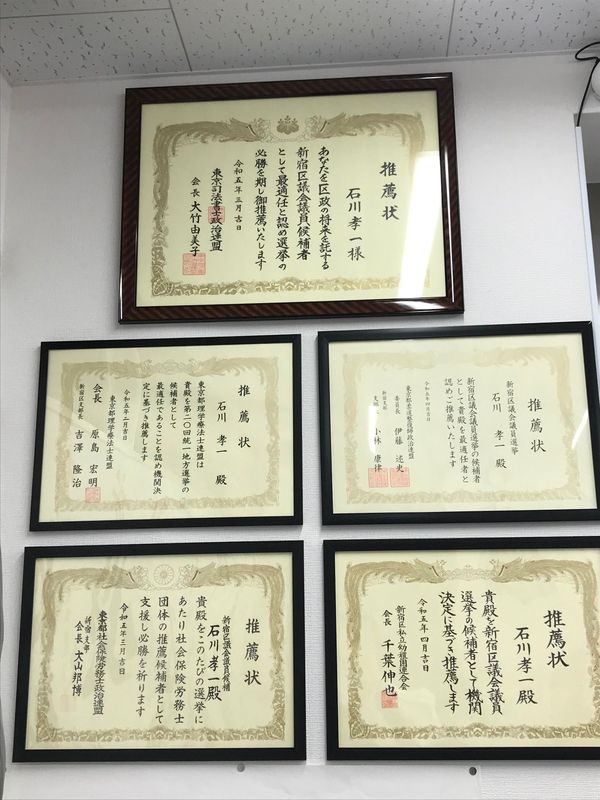 推薦状
石川孝一様
あなたを区政の将来を託する
新宿区議会議員候補者
として最適任と認め選挙の
必勝を期し御推薦いたします
令和五年三月吉日
東京司法書士政治連盟
会長 大竹由美子
推薦状
石川 孝一 殿
東京都理学療法士連盟は
貴殿を第二〇回統一地方選挙の
候補者として
最適任であることを認め機関決
定に基づき推薦します
令和五年二月吉日
東京都理学療法士連盟
会長 原島 宏明
新宿区支部長 吉澤 隆治
推薦状
新宿区議会議員選挙
石川 孝一 殿
新宿区議会議員選挙の候補者
として貴殿を最適任者と
認めご推薦いたします
令和五年四月吉日
東京都柔道整復師政治連盟
委員長 伊藤 述史
新宿支部
支部長 小林 康律
推薦状
新宿区議会議員候補
石川孝一殿
貴殿をこのたびの選挙に
あたり社会保険労務士
団体の推薦候補者として
支援し必勝を祈ります
令和五年三月吉日
東京都社会保険労務士政治連盟
新宿支部
会長 大山邦博
推薦状
石川孝一殿
貴殿を新宿区議会議員
選挙の候補者として機関
決定に基づき推薦します
令和五年四月吉日
新宿区私立幼稚園連合会
会長 千葉伸也